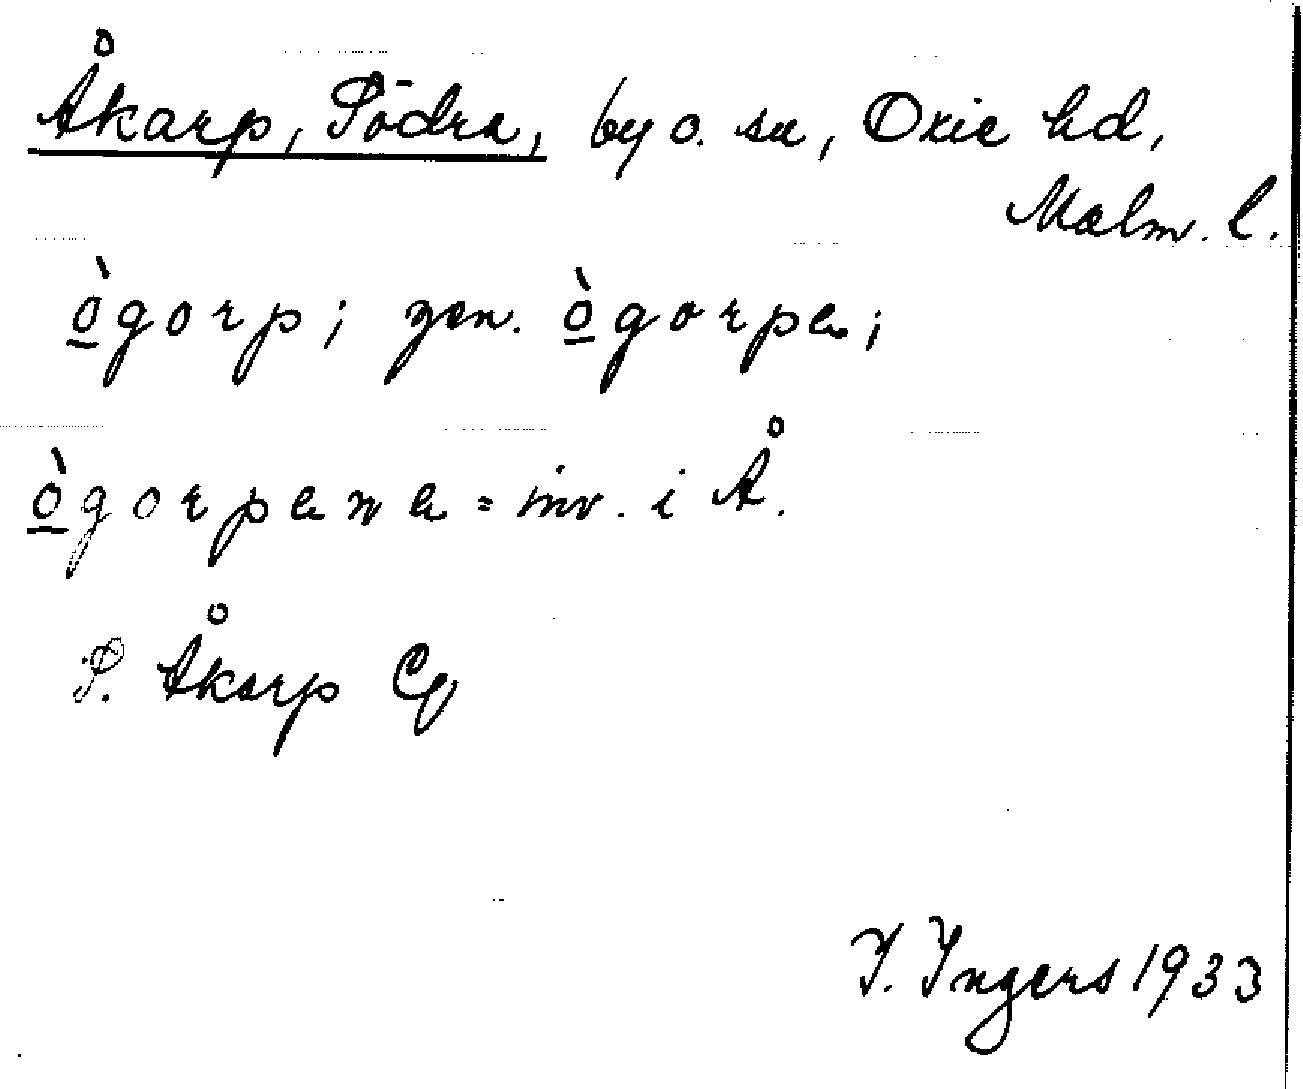 Åkarp, Södra, by o. sn, Oxie hd,
Malm. l.
ò̱gorp; gen. ò̱gorpa;
ò̱gorpana = inv. i Å.
S. Åkarp Cq
I. Ingers 1933